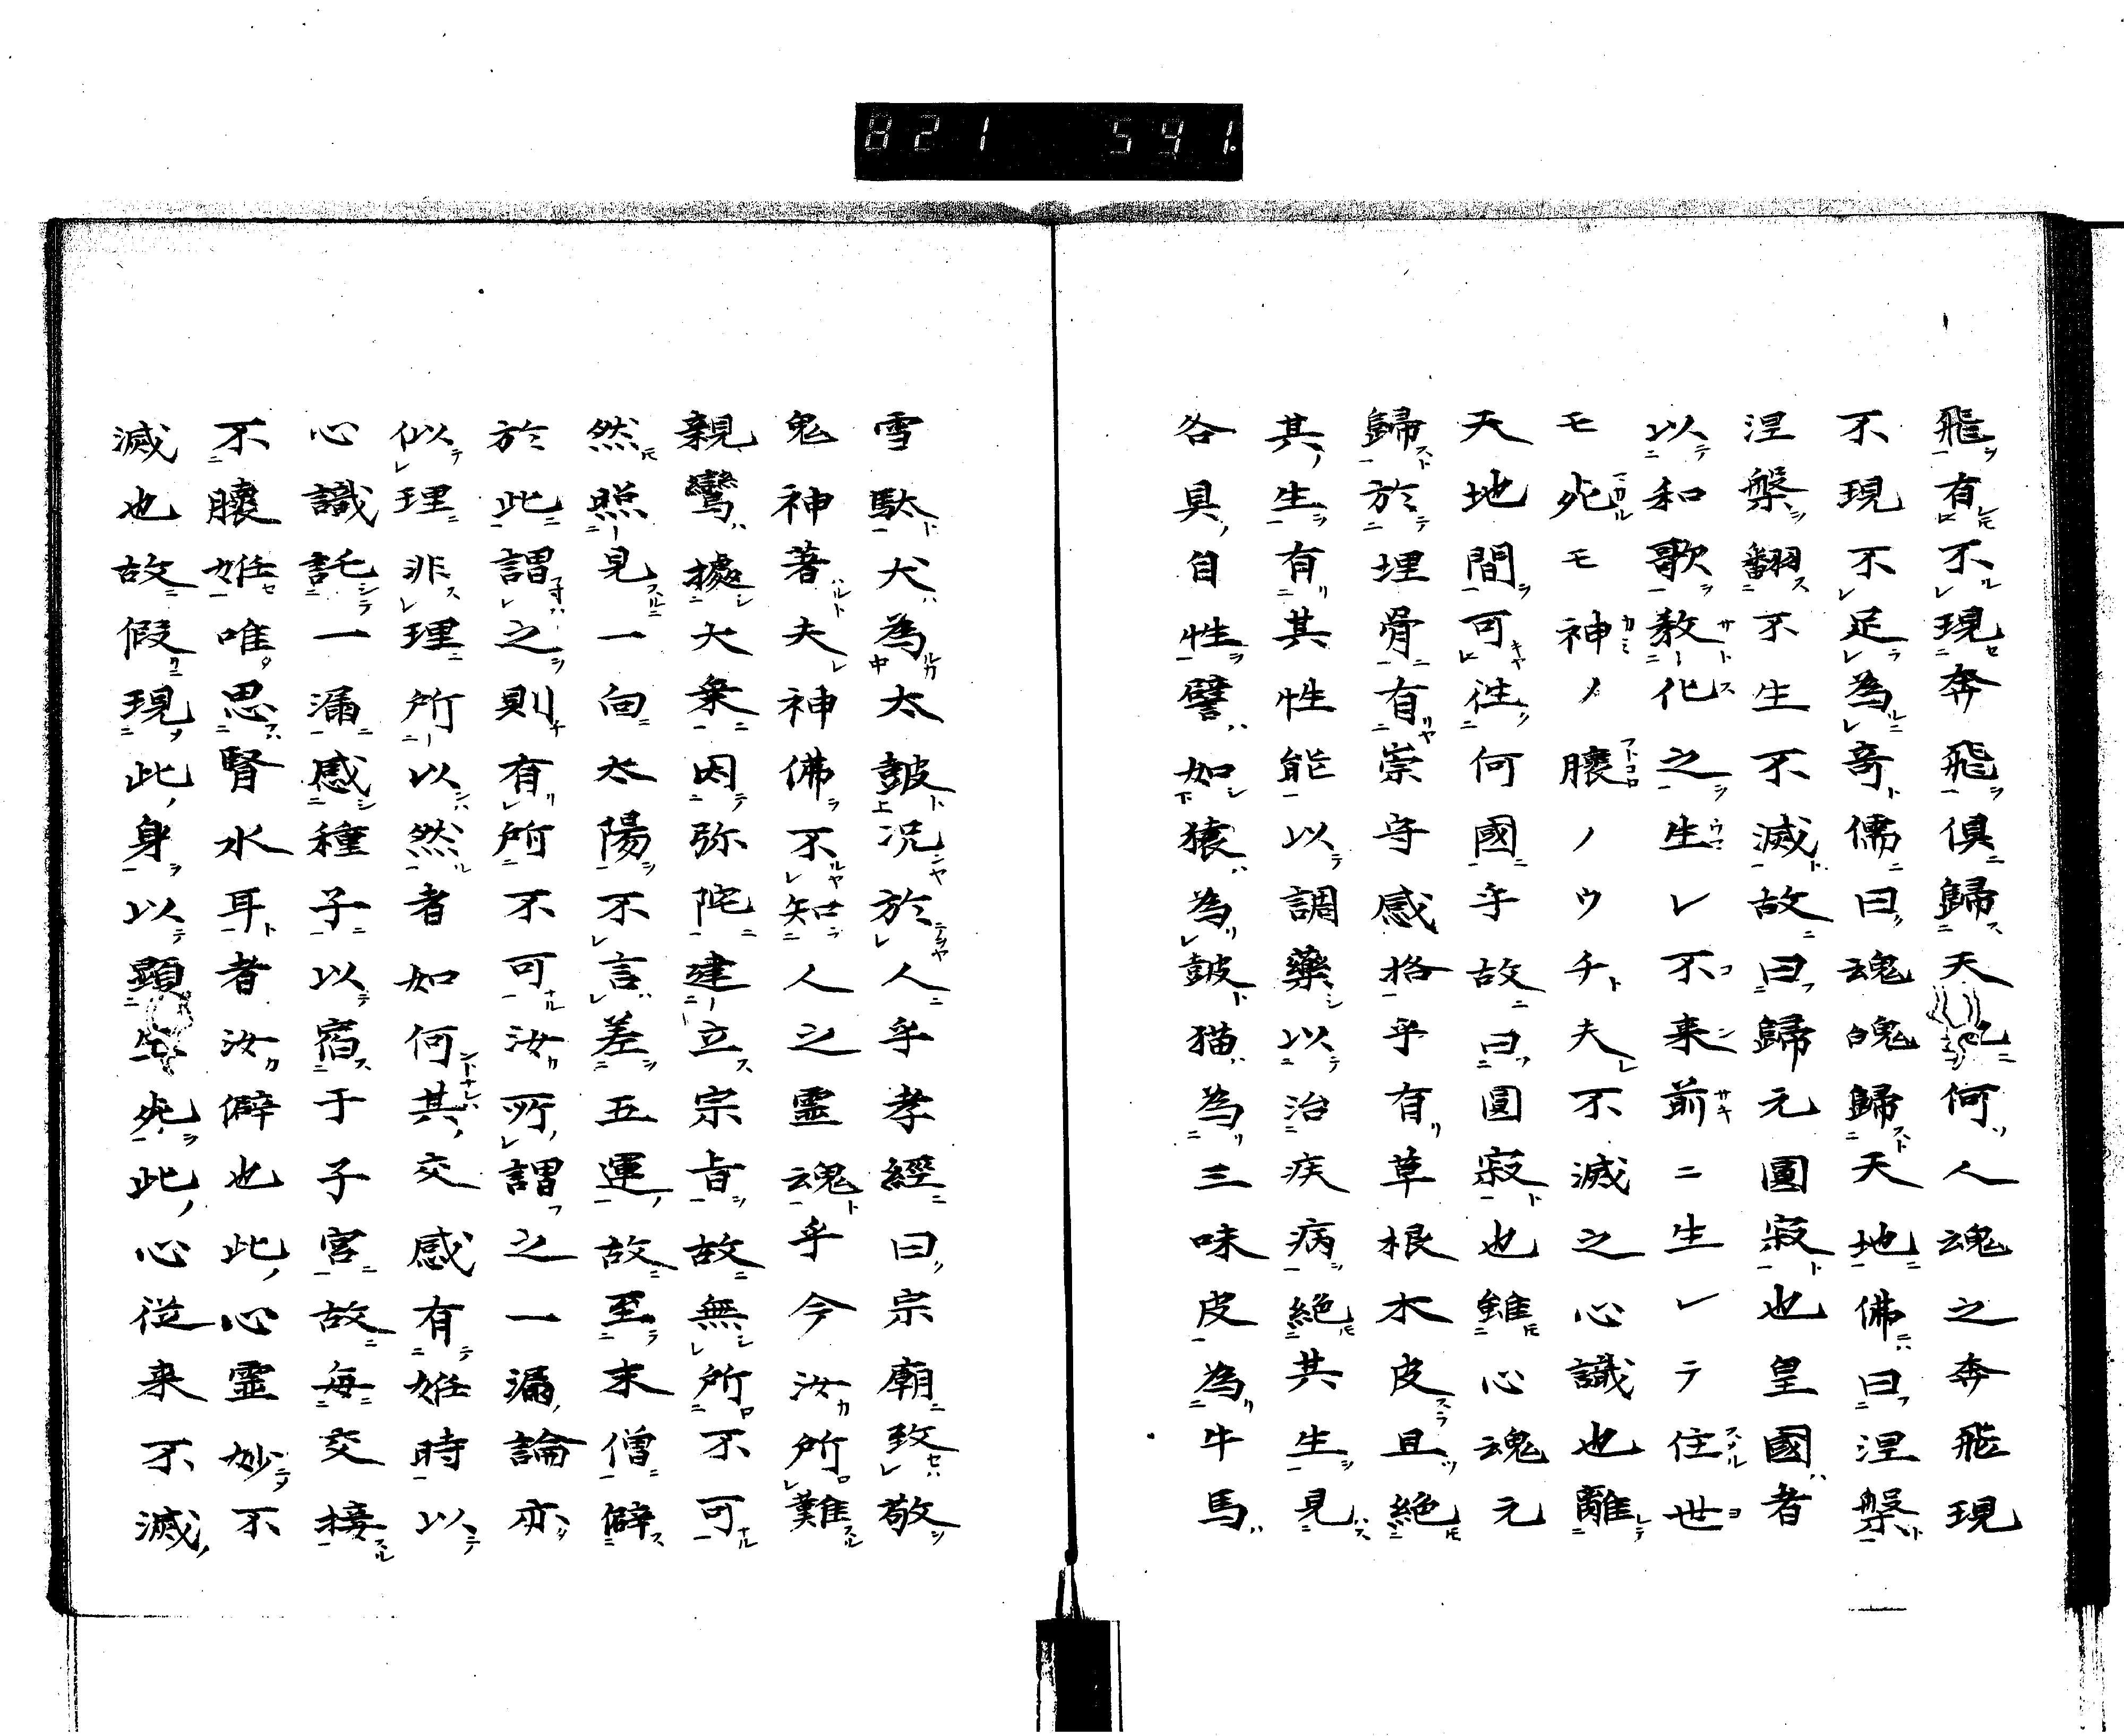 821 591.
飛有不現奔飛倶歸天何人魂之奔飛現
不現不足為奇儒曰魂魄歸天地佛曰涅槃
涅槃翻不生不滅故曰歸元圓寂也皇國者
以和歌教化之生レ不来前ニ生レテ住世
モ死モ神ノ膿ノウチ夫不滅之心識也離
天地間可徃何國乎故曰圓寂也雖心魂元
歸於埋骨有崇守感格乎有草根木皮且絶
其生有其性能以調藥以治疾病絶其生見
各具自性譬如猿為皷猫為三味皮為牛馬
雪駄犬為太皷况於人乎孝經曰宗廟致敬
鬼神著夫神佛不知人之霊魂乎今汝所難
親鸞據大衆因弥陀建立宗旨故無所不可
然照見一向太陽不言差五運故至末僧僻
於此謂之則有所不可汝所謂之一漏論亦
似理非理所以然者如何其交感有姙時以
心識託一漏感種子以宿于子宮故毎交接
不膿姙唯思腎水耳者汝僻也此心霊妙不
滅也故假現此身以顕生死此心従来不滅